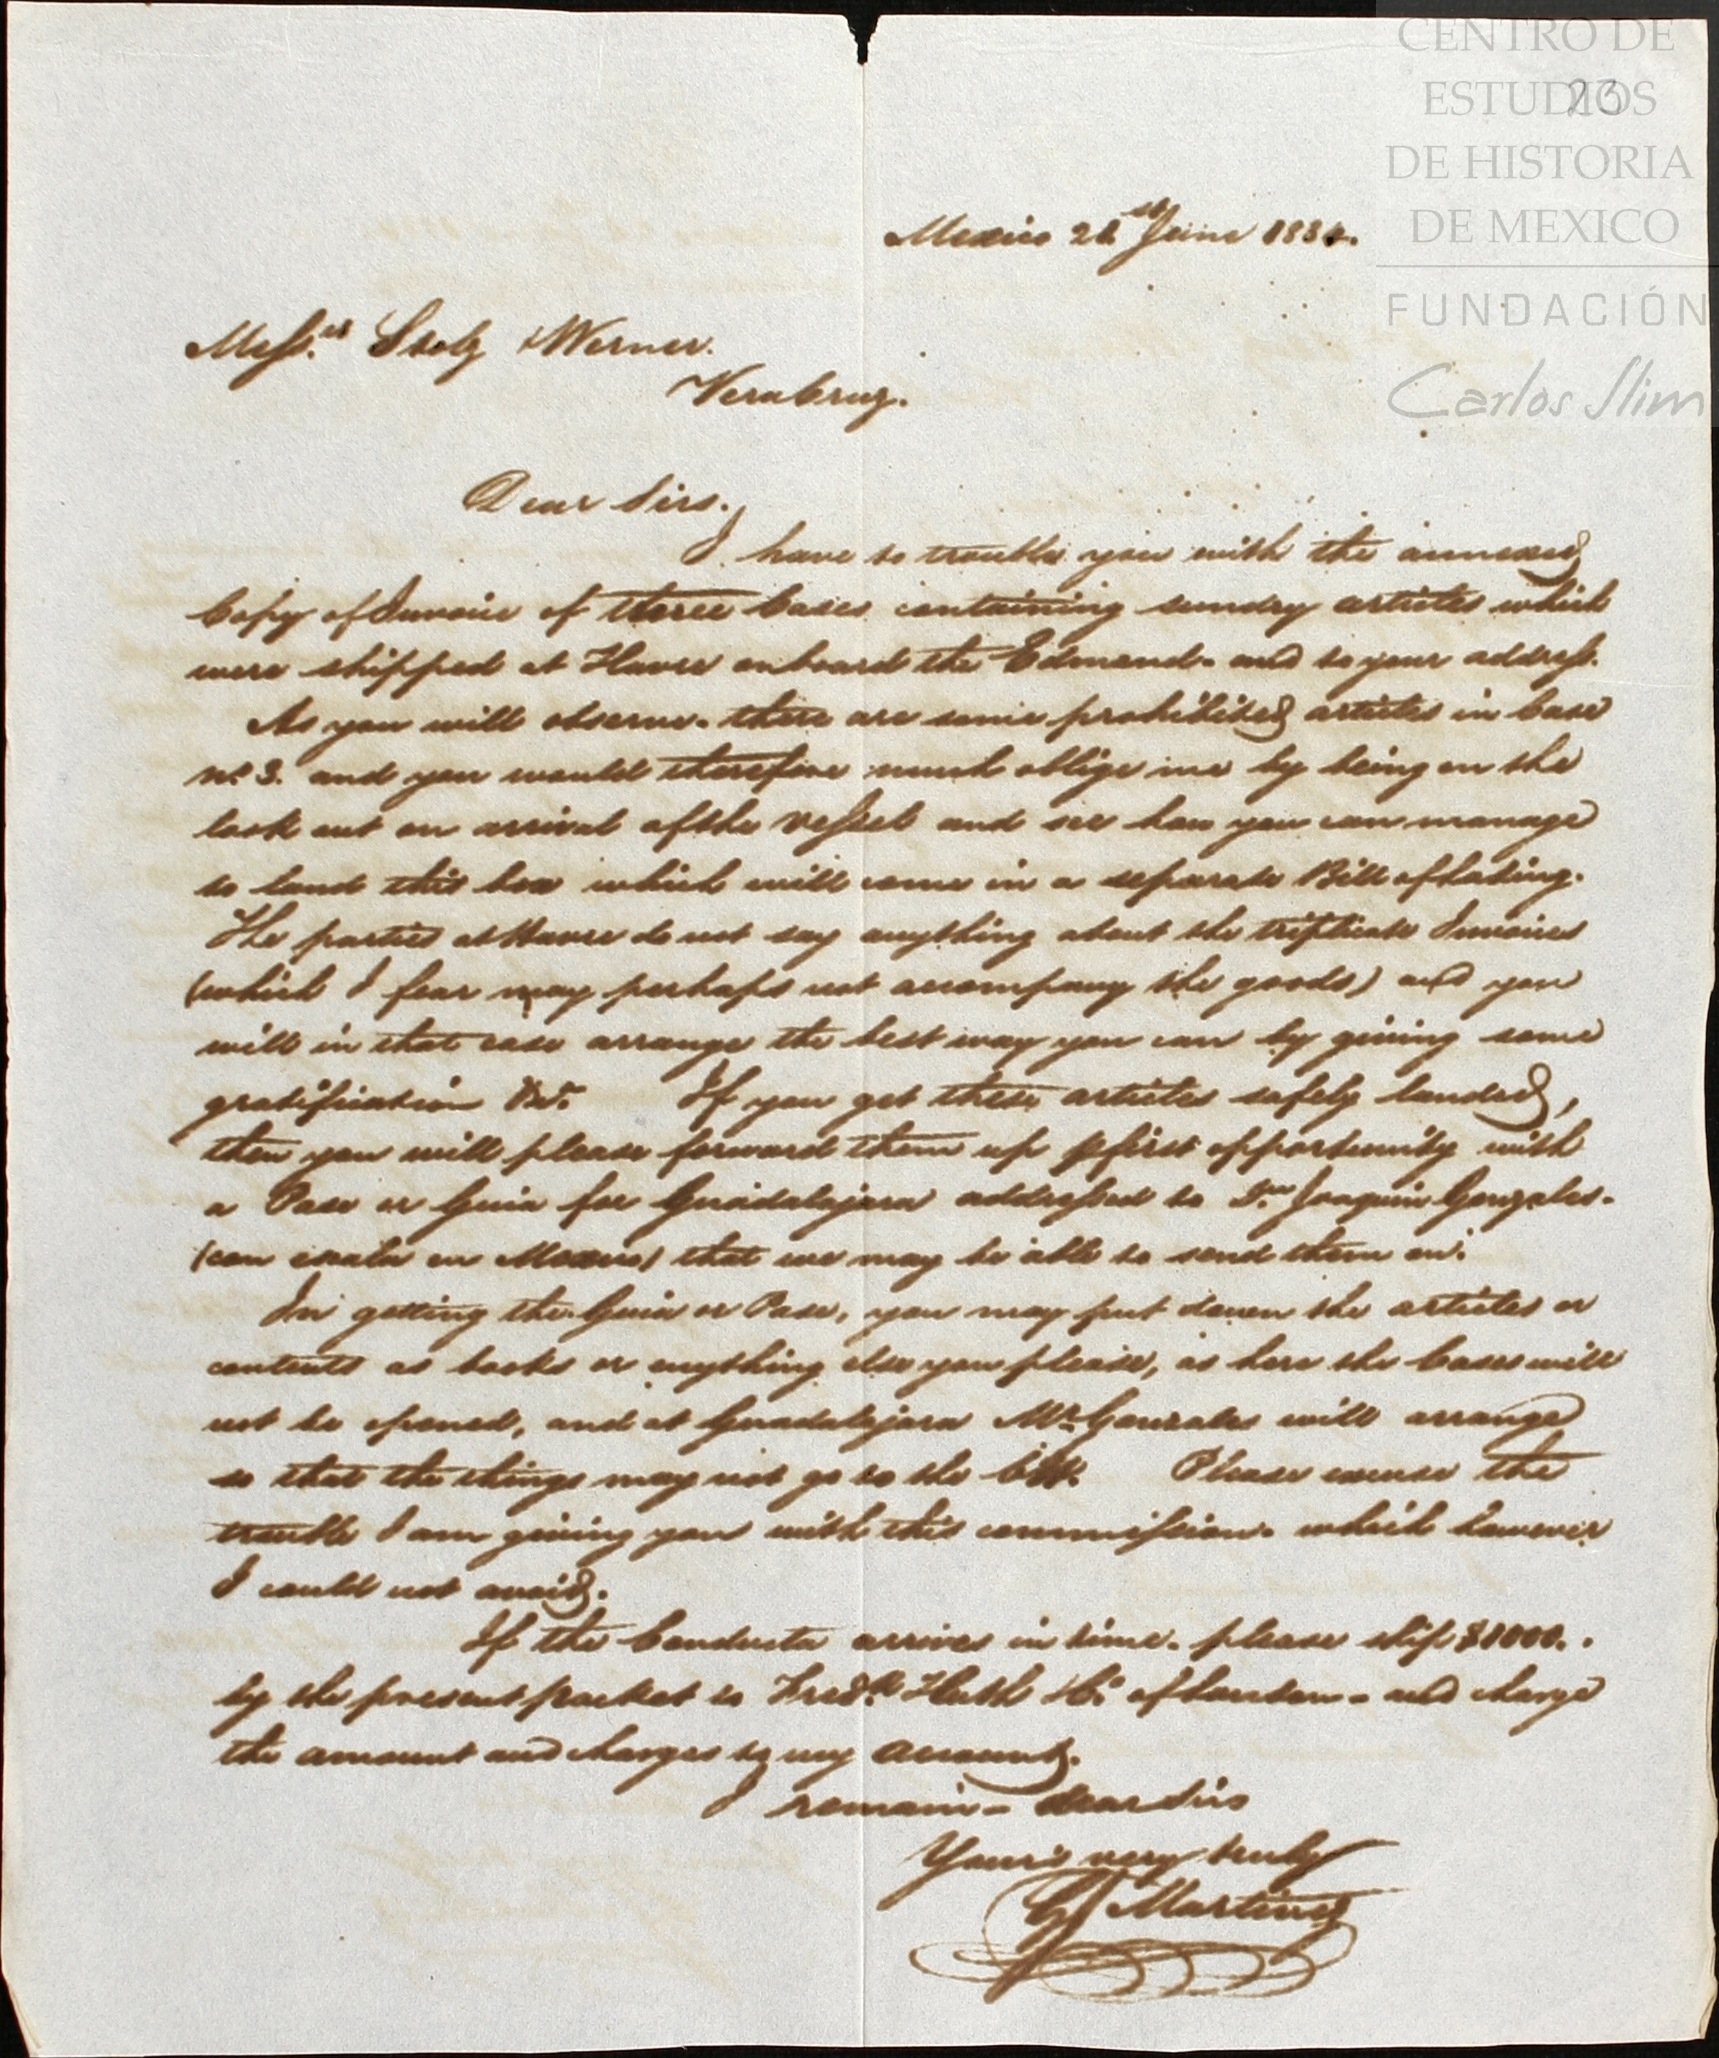 CENTRO DE
ESTUDIOS
DE HISTORIA
DE MEXICO
FUNDACIÓN
Carlos Slim
23
Mexico 21st June 1834.
Messrs Stolz & Werner.
Vera Cruz.
Dear Sirs.
I have to trouble you with the annexed
Copy of Invoice of three Cases containing sundry articles which
were shipped at Havre onboard the Edmond. and to your address.
As you will observe. there are some prohibited articles in Case
No. 3. and you would therefore much oblige me by being on the
look out on arrival of the vessel and see how you can manage
to land this box which will come in a separate Bill of Lading.
The parties at Havre do not say anything about the triplicate Invoices
(which I fear may perhaps not accompany the goods) and you
will in that case arrange the best way you can by giving some
gratification &c. If you get these articles safely landed,
then you will please forward them up pr first opportunity with
a Pase or Guia for Guadalajara addressed to Dn Joaquin Gonzales.
(con escala en Mexico) that we may be able to send them on.
In getting the Guia or Pase, you may put down the articles or
contents as books or anything else you please, as here the Cases will
not be opened, and at Guadalajara Mr. Gonzales will arrange
so that the things may not go to the Please excuse the
trouble I am giving you with this commission. which however
I could not avoid.
If the Conducta arrives in time. please ship $1000..
by the present packet to Fredk Huth & Co of London. and charge
the amount and charges to my account.
I remain. dear Sirs
Your's very truly
Martinez